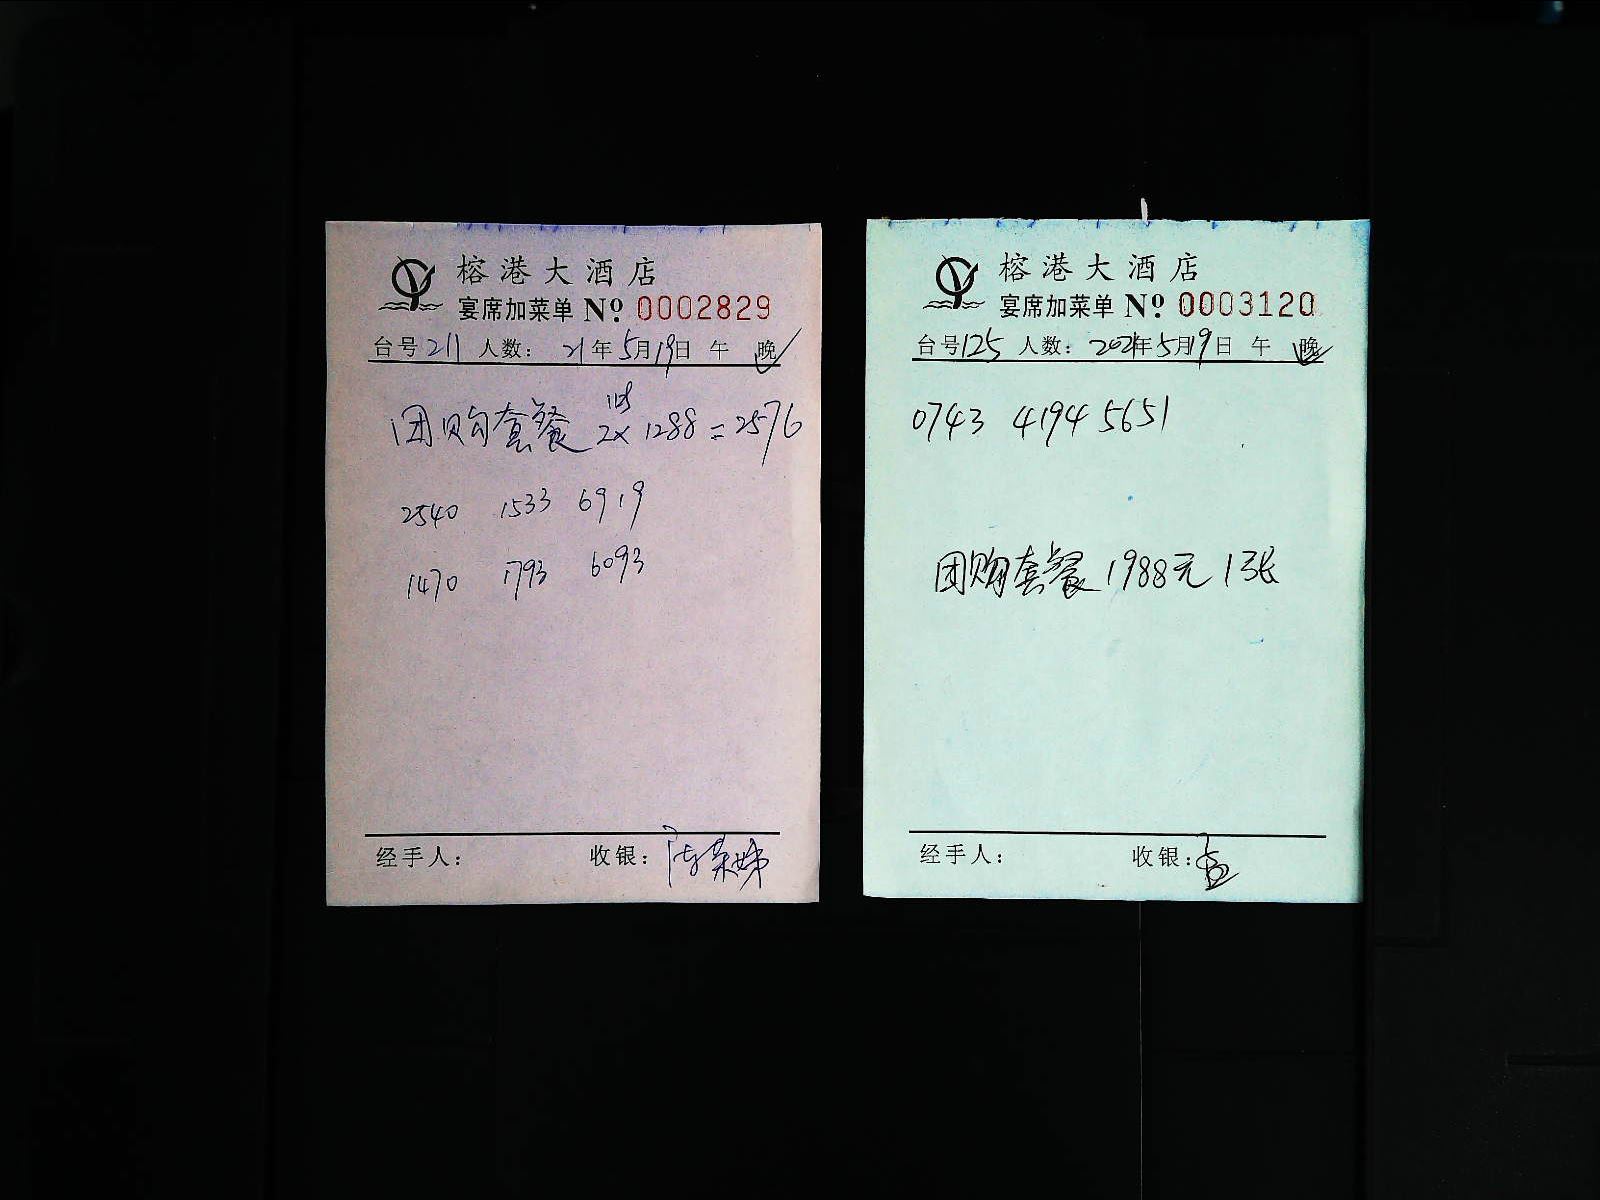 榕港大酒店
宴席加菜单 Nº 0002829
台号 211 人数： 21年5月19日 午 晚
团购套餐 2× 1288 = 2576
2540 1533 6919
1470 1793 6093
经手人： 收银：
榕港大酒店
宴席加菜单 Nº 0003120
台号 125 人数： 2021年5月19日 午 晚
0743 4194 5651
团购套餐 1988元 1张
经手人： 收银：